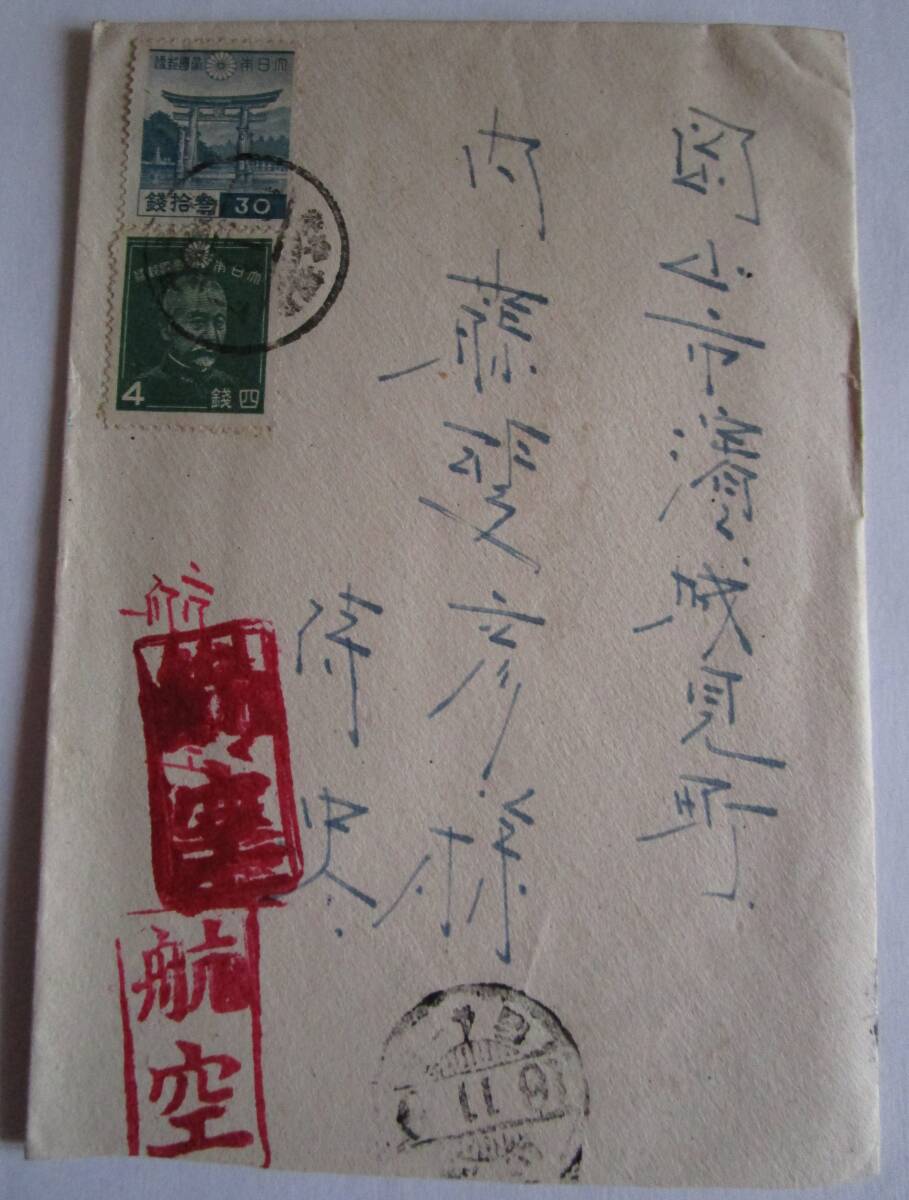 岡山市濱城見町
内藤 彦様
侍史
大日本帝國郵便
30 参拾錢
大日本帝國郵便
4 四錢
航
航空
航空
11